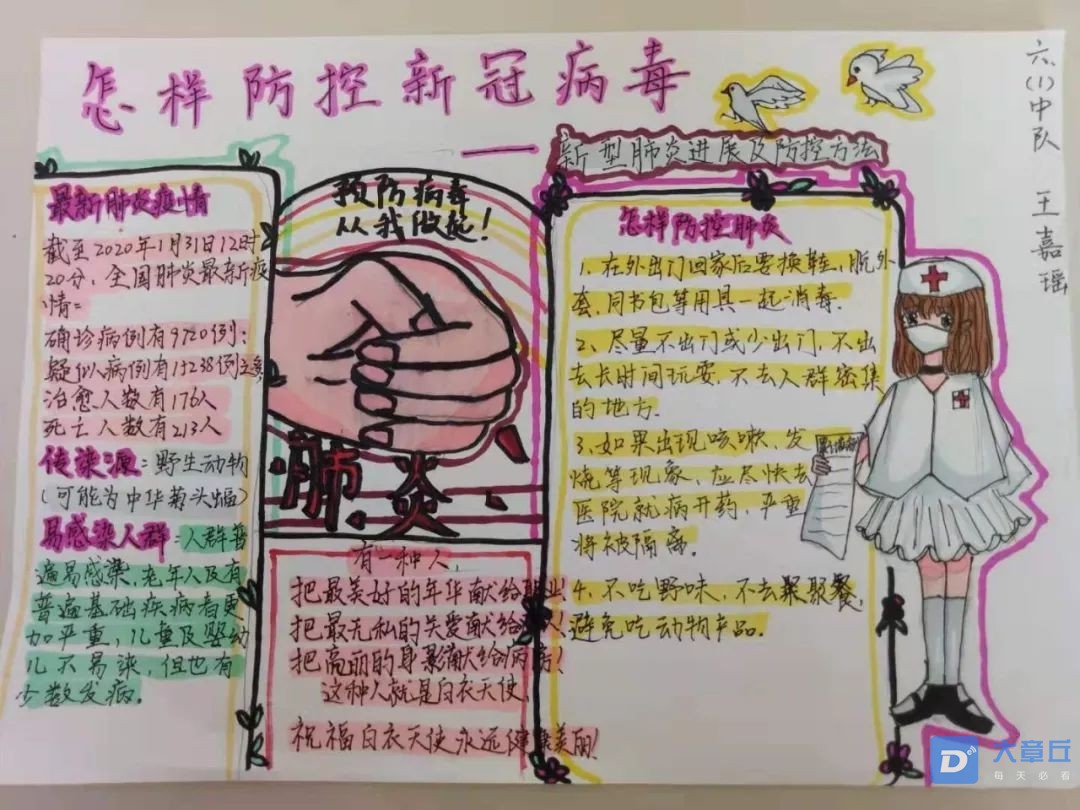 怎样防控新冠病毒
——新型肺炎进展及防控方法
六、(1)中队 王嘉瑶
最新肺炎疫情
截至2020年1月31日12时
20分，全国肺炎最新疫
情：
确诊病例有9720例；
疑似病例有15238例
治愈人数有176人
死亡人数有213人
传染源：野生动物
(可能为中华菊头蝠)
易感染人群：人群普
遍易感染，老年人及有
普遍基础疾病者更
加严重，儿童及婴幼
儿不易染，但也有
少数发病。
预防病毒
从我做起！
肺炎
有一种人，
把最美好的年华献给职业！
把最无私的关爱献给！
把高丽的身影献给病房！
这种人就是白衣天使，
祝福白衣天使永远健康美丽！
怎样防控肺炎
1、在外出门回家后要换鞋，脱外
套，同书包等用具一起消毒.
2、尽量不出门或少出门，不出
去长时间玩耍，不去人群密集
的地方.
3、如果出现咳嗽、发
烧等现象，应尽快去
医院就病开药，严重
将被隔离。
4、不吃野味，不去聚聚餐，
避免吃动物产品。
大章丘
每天必看